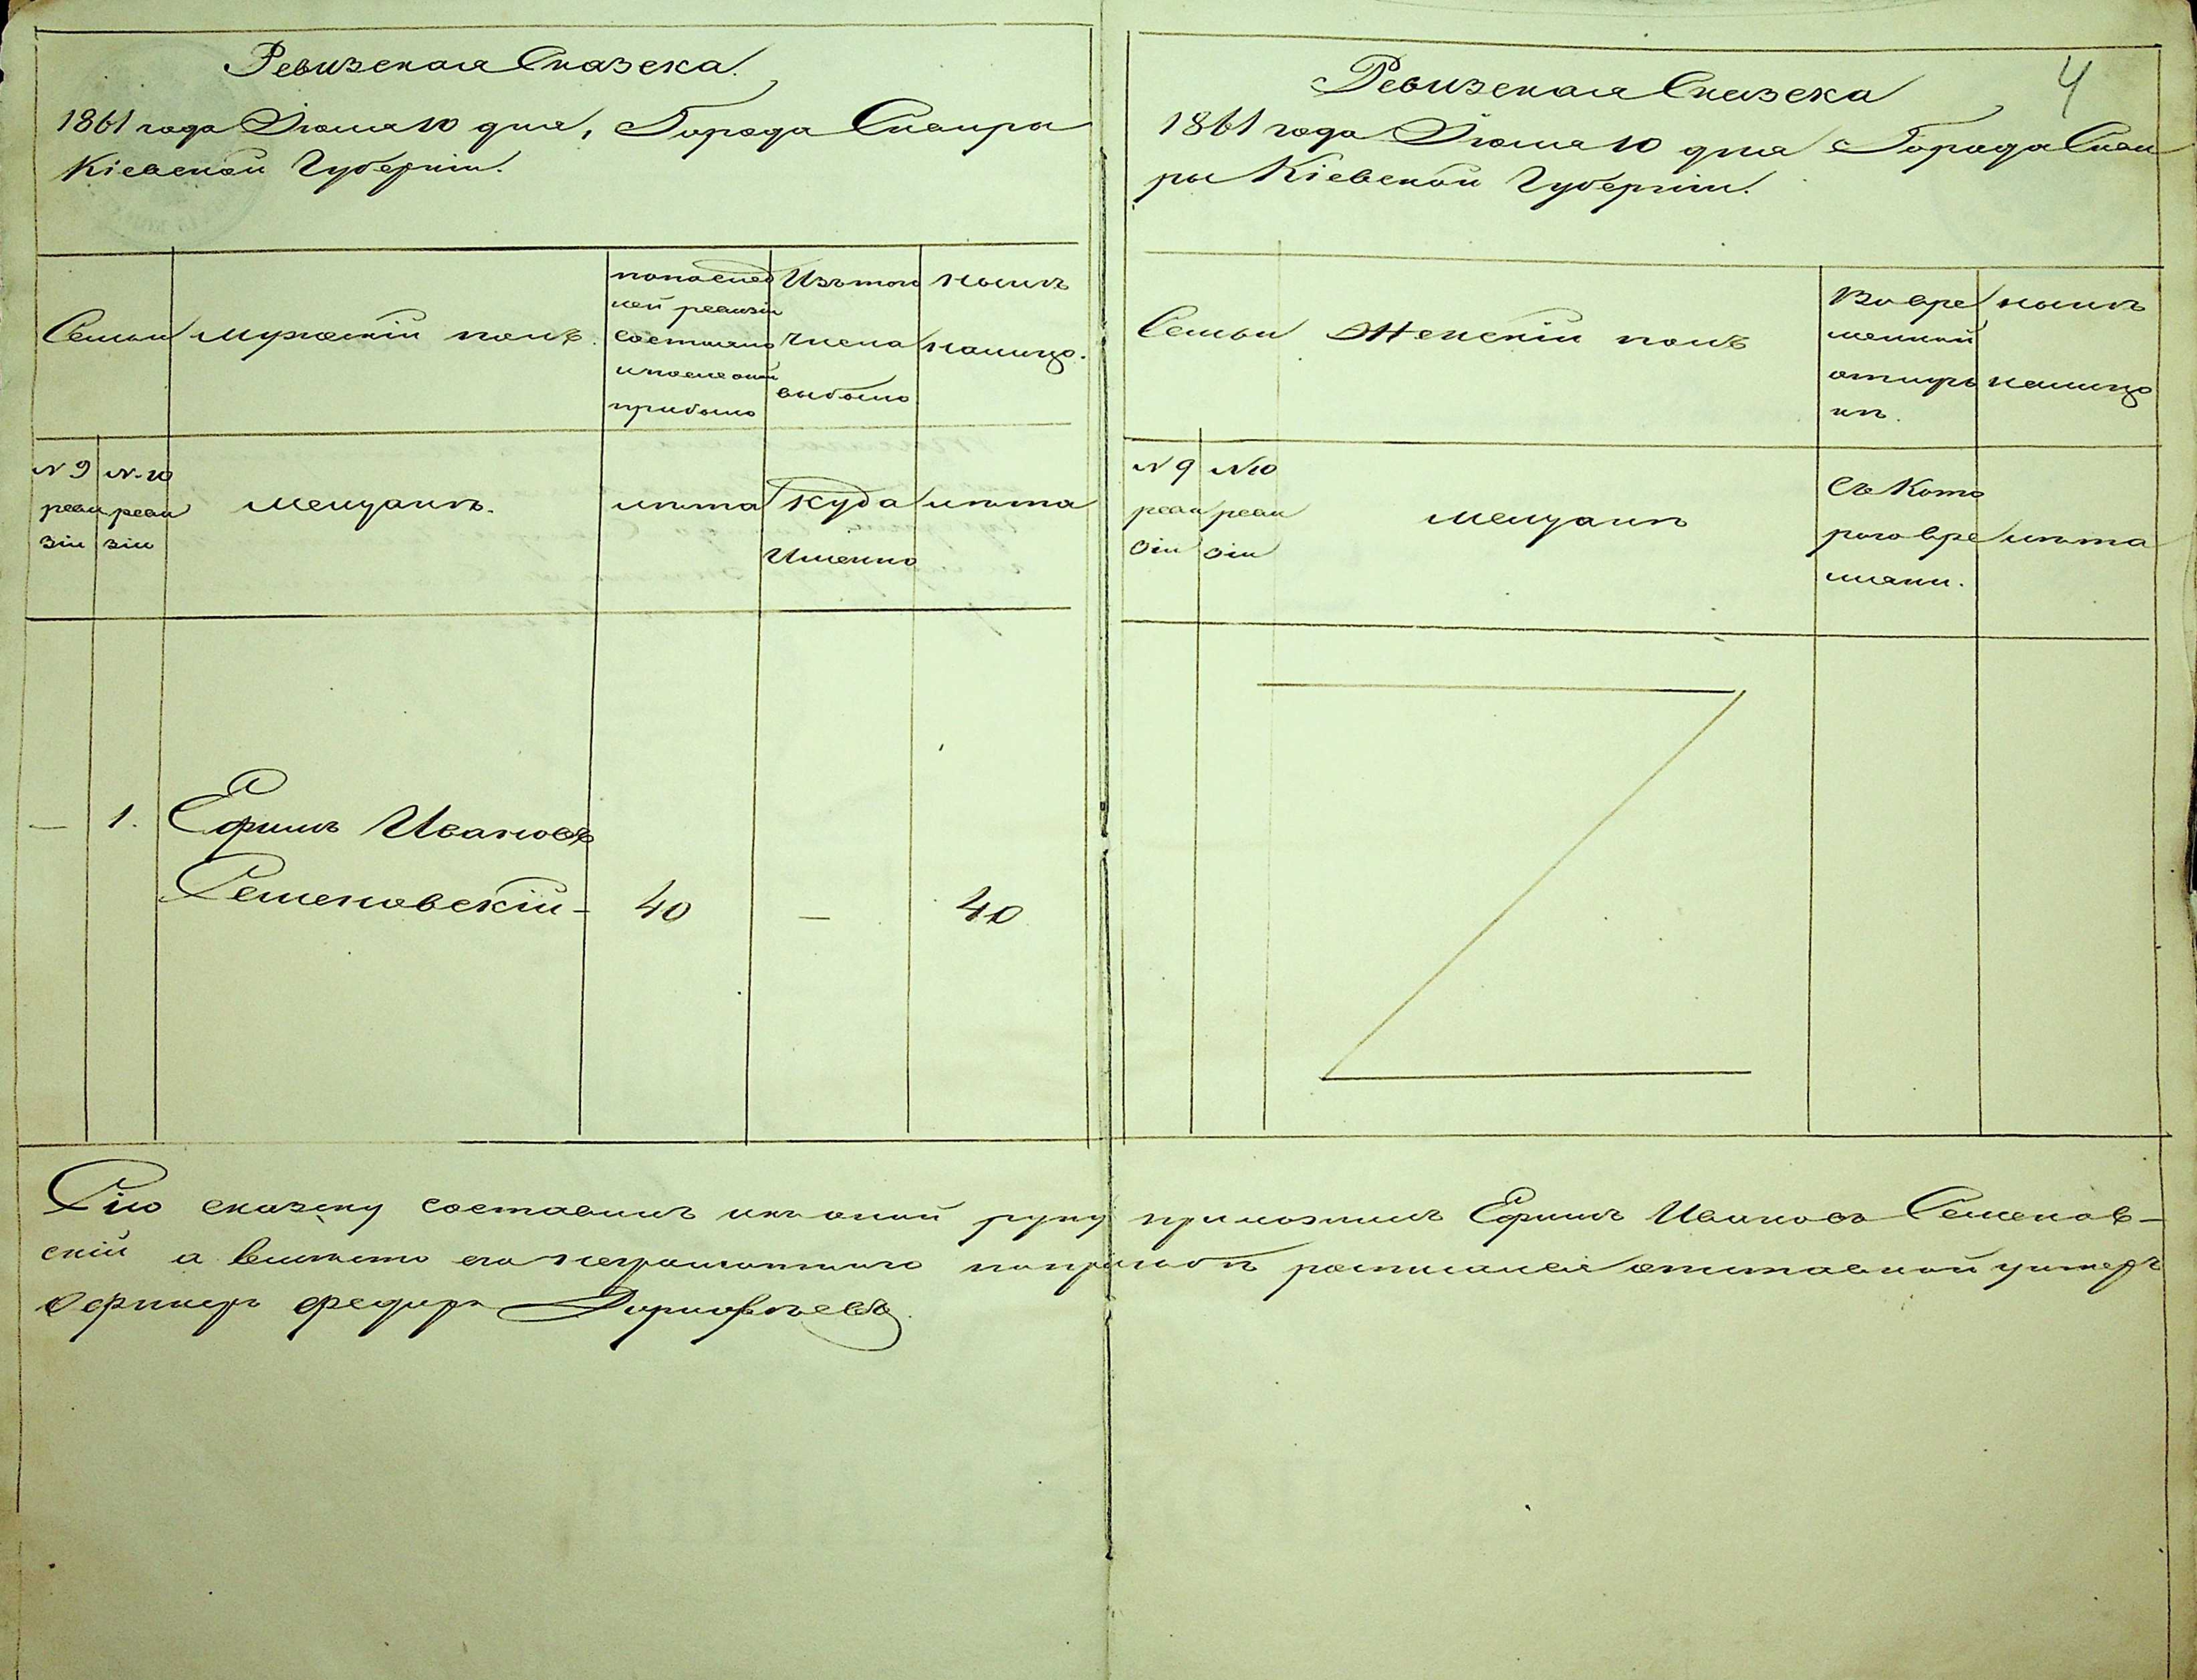 Ревизская Сказска.
1861 года Июля 10 дня, Города Сквиры
Кіевской Губерніи.
Семьи
мужескій полъ.
попослед
ней ревизіи
состояло
ипослеоной
прибыло
Изътого
числа
выбыло
нынѣ
налицо.
N 9
реви
зіи
N 10
реви
зіи
мещанѣ.
лѣта
Куда
Именно
лѣта
—
1.
Ефимъ Ивановъ
Семеновскій-
40
—
40
Ревизская Сказска
4
1861 года Июля 10 дня Города Скви
ры Кіевской Губерніи.
Семьи
Женскій полъ
Во вре
менной
отлуч
кѣ.
нынѣ
налицо
N 9
реви
зіи
N 10
реви
зіи
мещанѣ
Съ Кото
рого вре
мяни.
лѣта
Сію сказску составилъ икъ оной руку приложилъ Ефимъ Ивановъ Семенов-
скій а вместо его неграмотного попрозбѣ росписался отставной унтеръ
офицеръ Федоръ